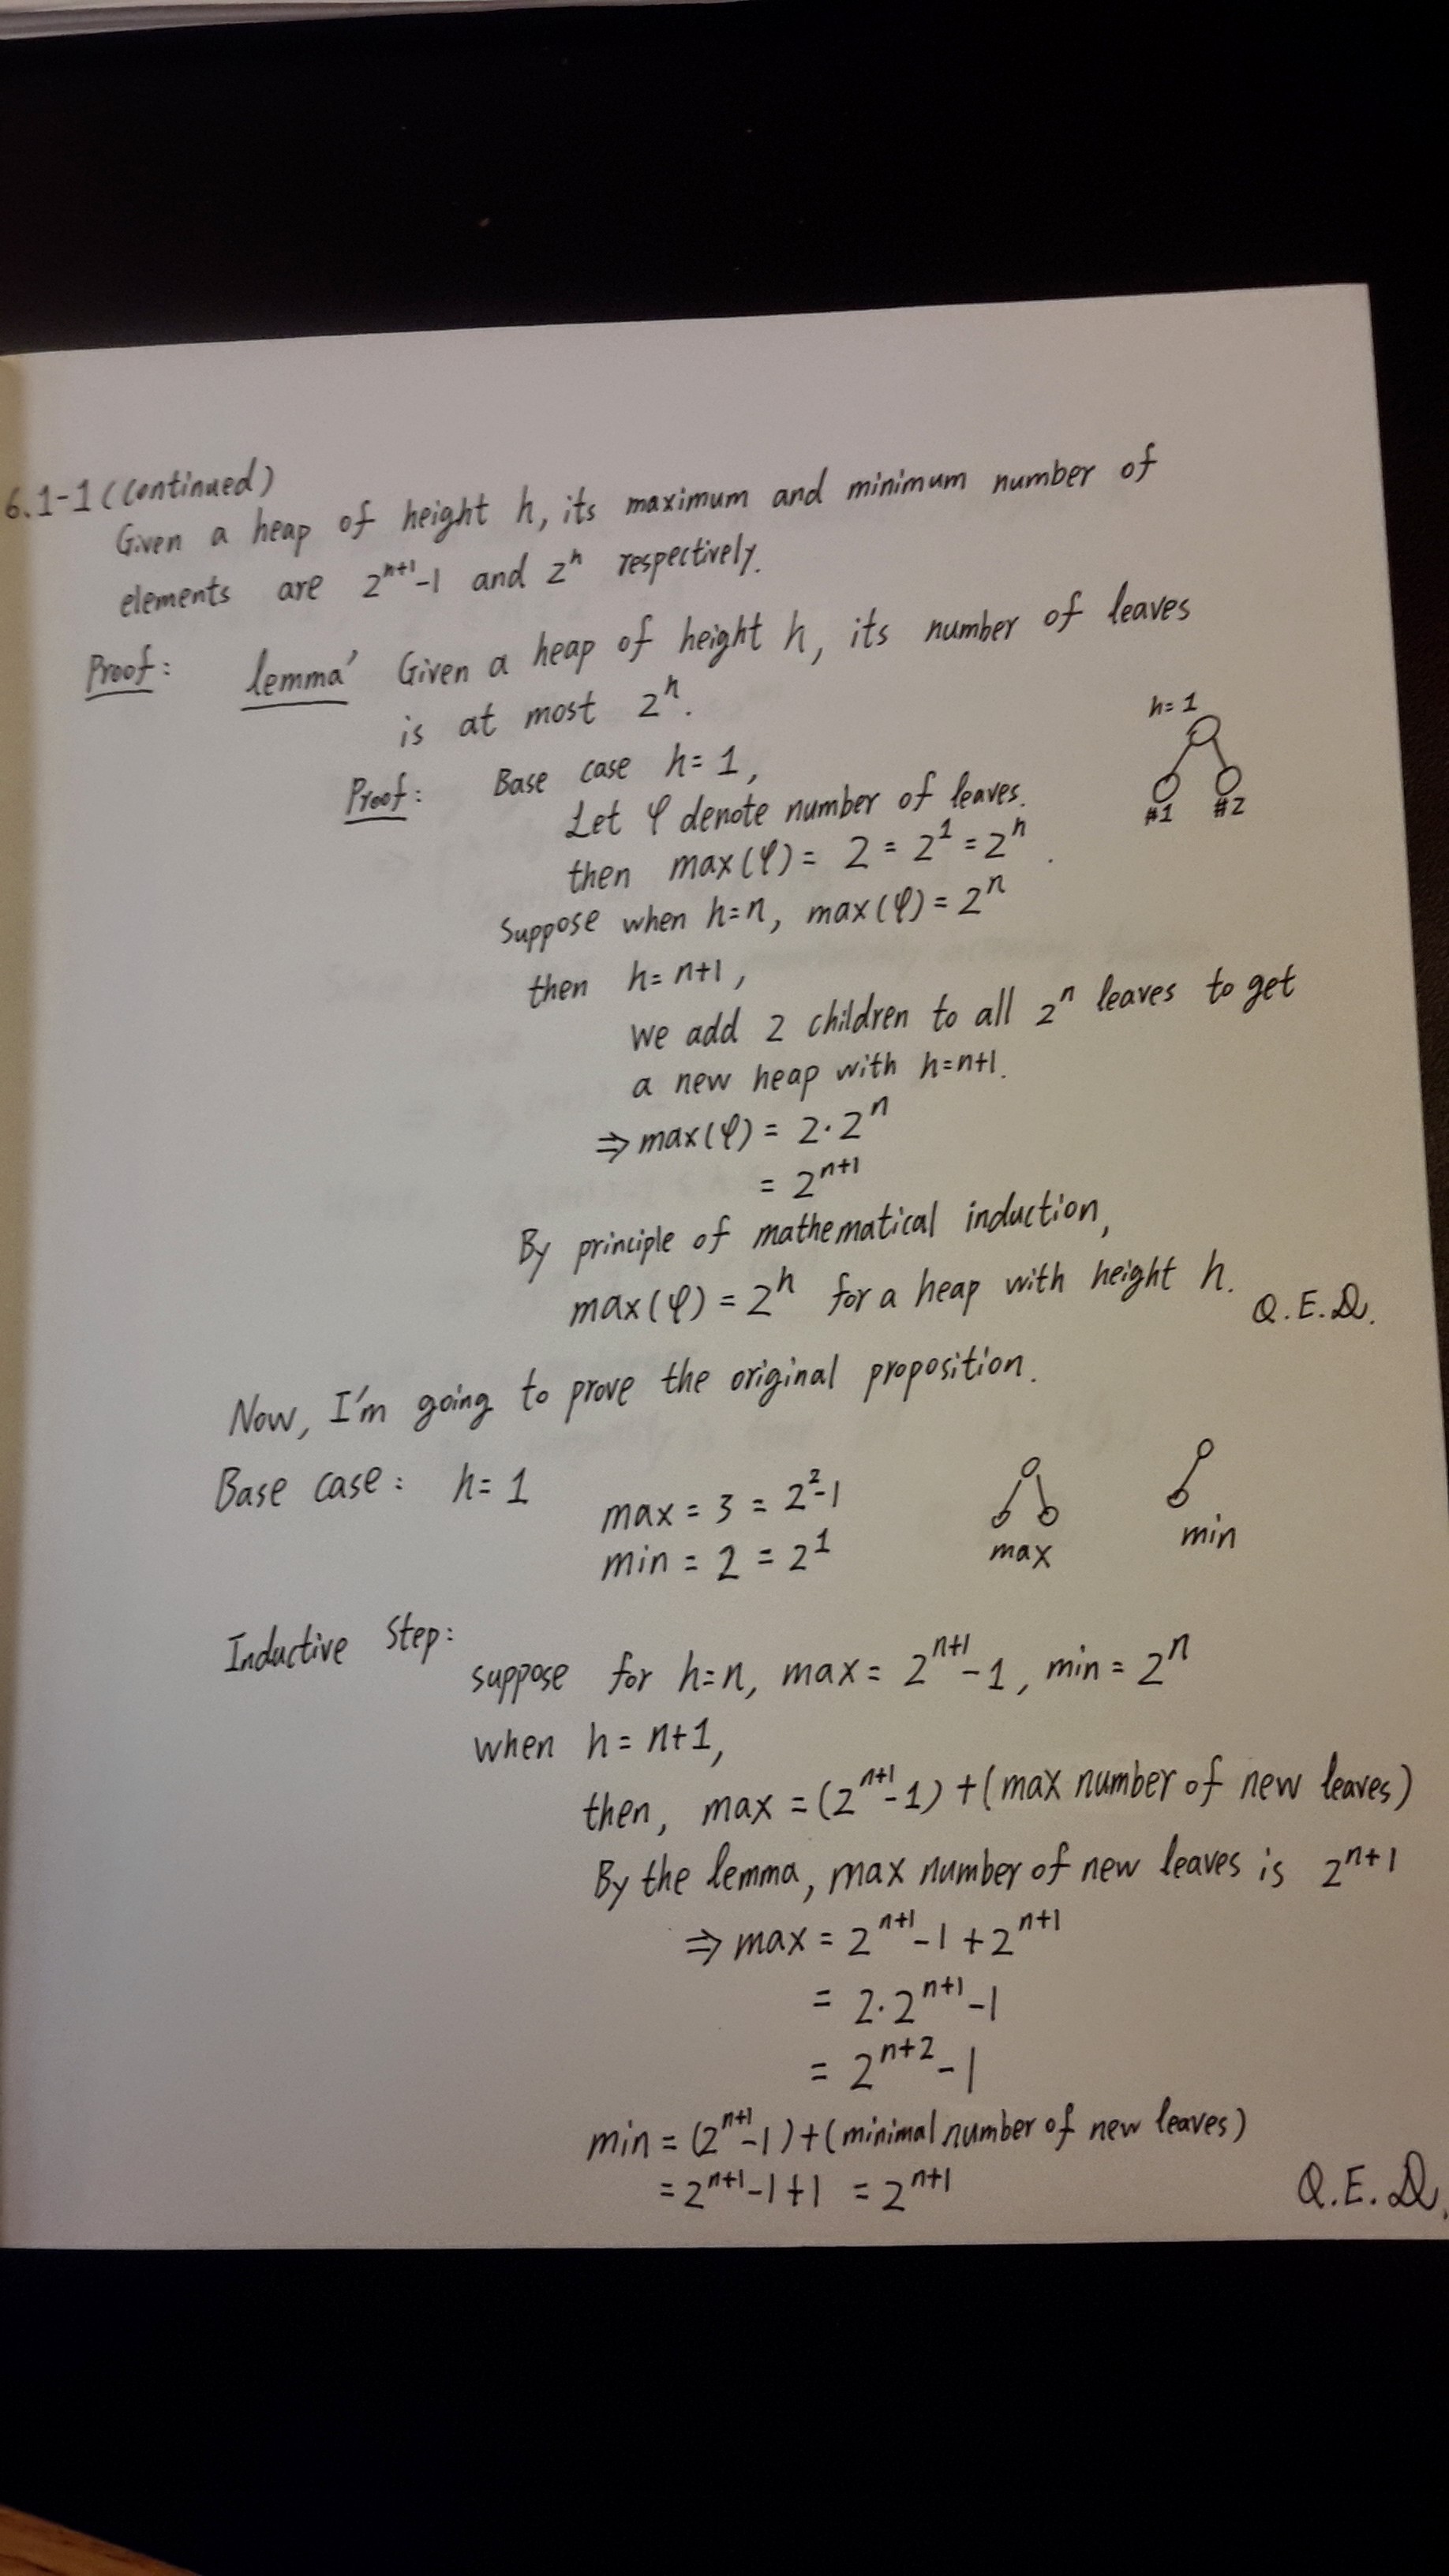 6.1-1 (Continued)
Given a heap of height h, its maximum and minimum number of
elements are 2^{h+1}-1 and 2^h respectively.
Proof: lemma' Given a heap of height h, its number of leaves
is at most 2^h.
h=1
Proof: Base case h=1,
Let φ denote number of leaves.
#1 #2
then max(φ) = 2 = 2^1 = 2^h.
Suppose when h=n, max(φ) = 2^n
then h=n+1,
we add 2 children to all 2^n leaves to get
a new heap with h=n+1.
⇒ max(φ) = 2·2^n
= 2^{n+1}
By principle of mathematical induction,
max(φ) = 2^h for a heap with height h.
Q.E.D.
Now, I'm going to prove the original proposition.
Base case: h=1
max = 3 = 2^2-1
min = 2 = 2^1
max min
Inductive Step:
suppose for h=n, max = 2^{n+1}-1, min = 2^n
when h=n+1,
then, max = (2^{n+1}-1) + (max number of new leaves)
By the lemma, max number of new leaves is 2^{n+1}
⇒ max = 2^{n+1}-1+2^{n+1}
= 2·2^{n+1}-1
= 2^{n+2}-1
min = (2^{n+1}-1)+(minimal number of new leaves)
= 2^{n+1}-1+1 = 2^{n+1}
Q.E.D.